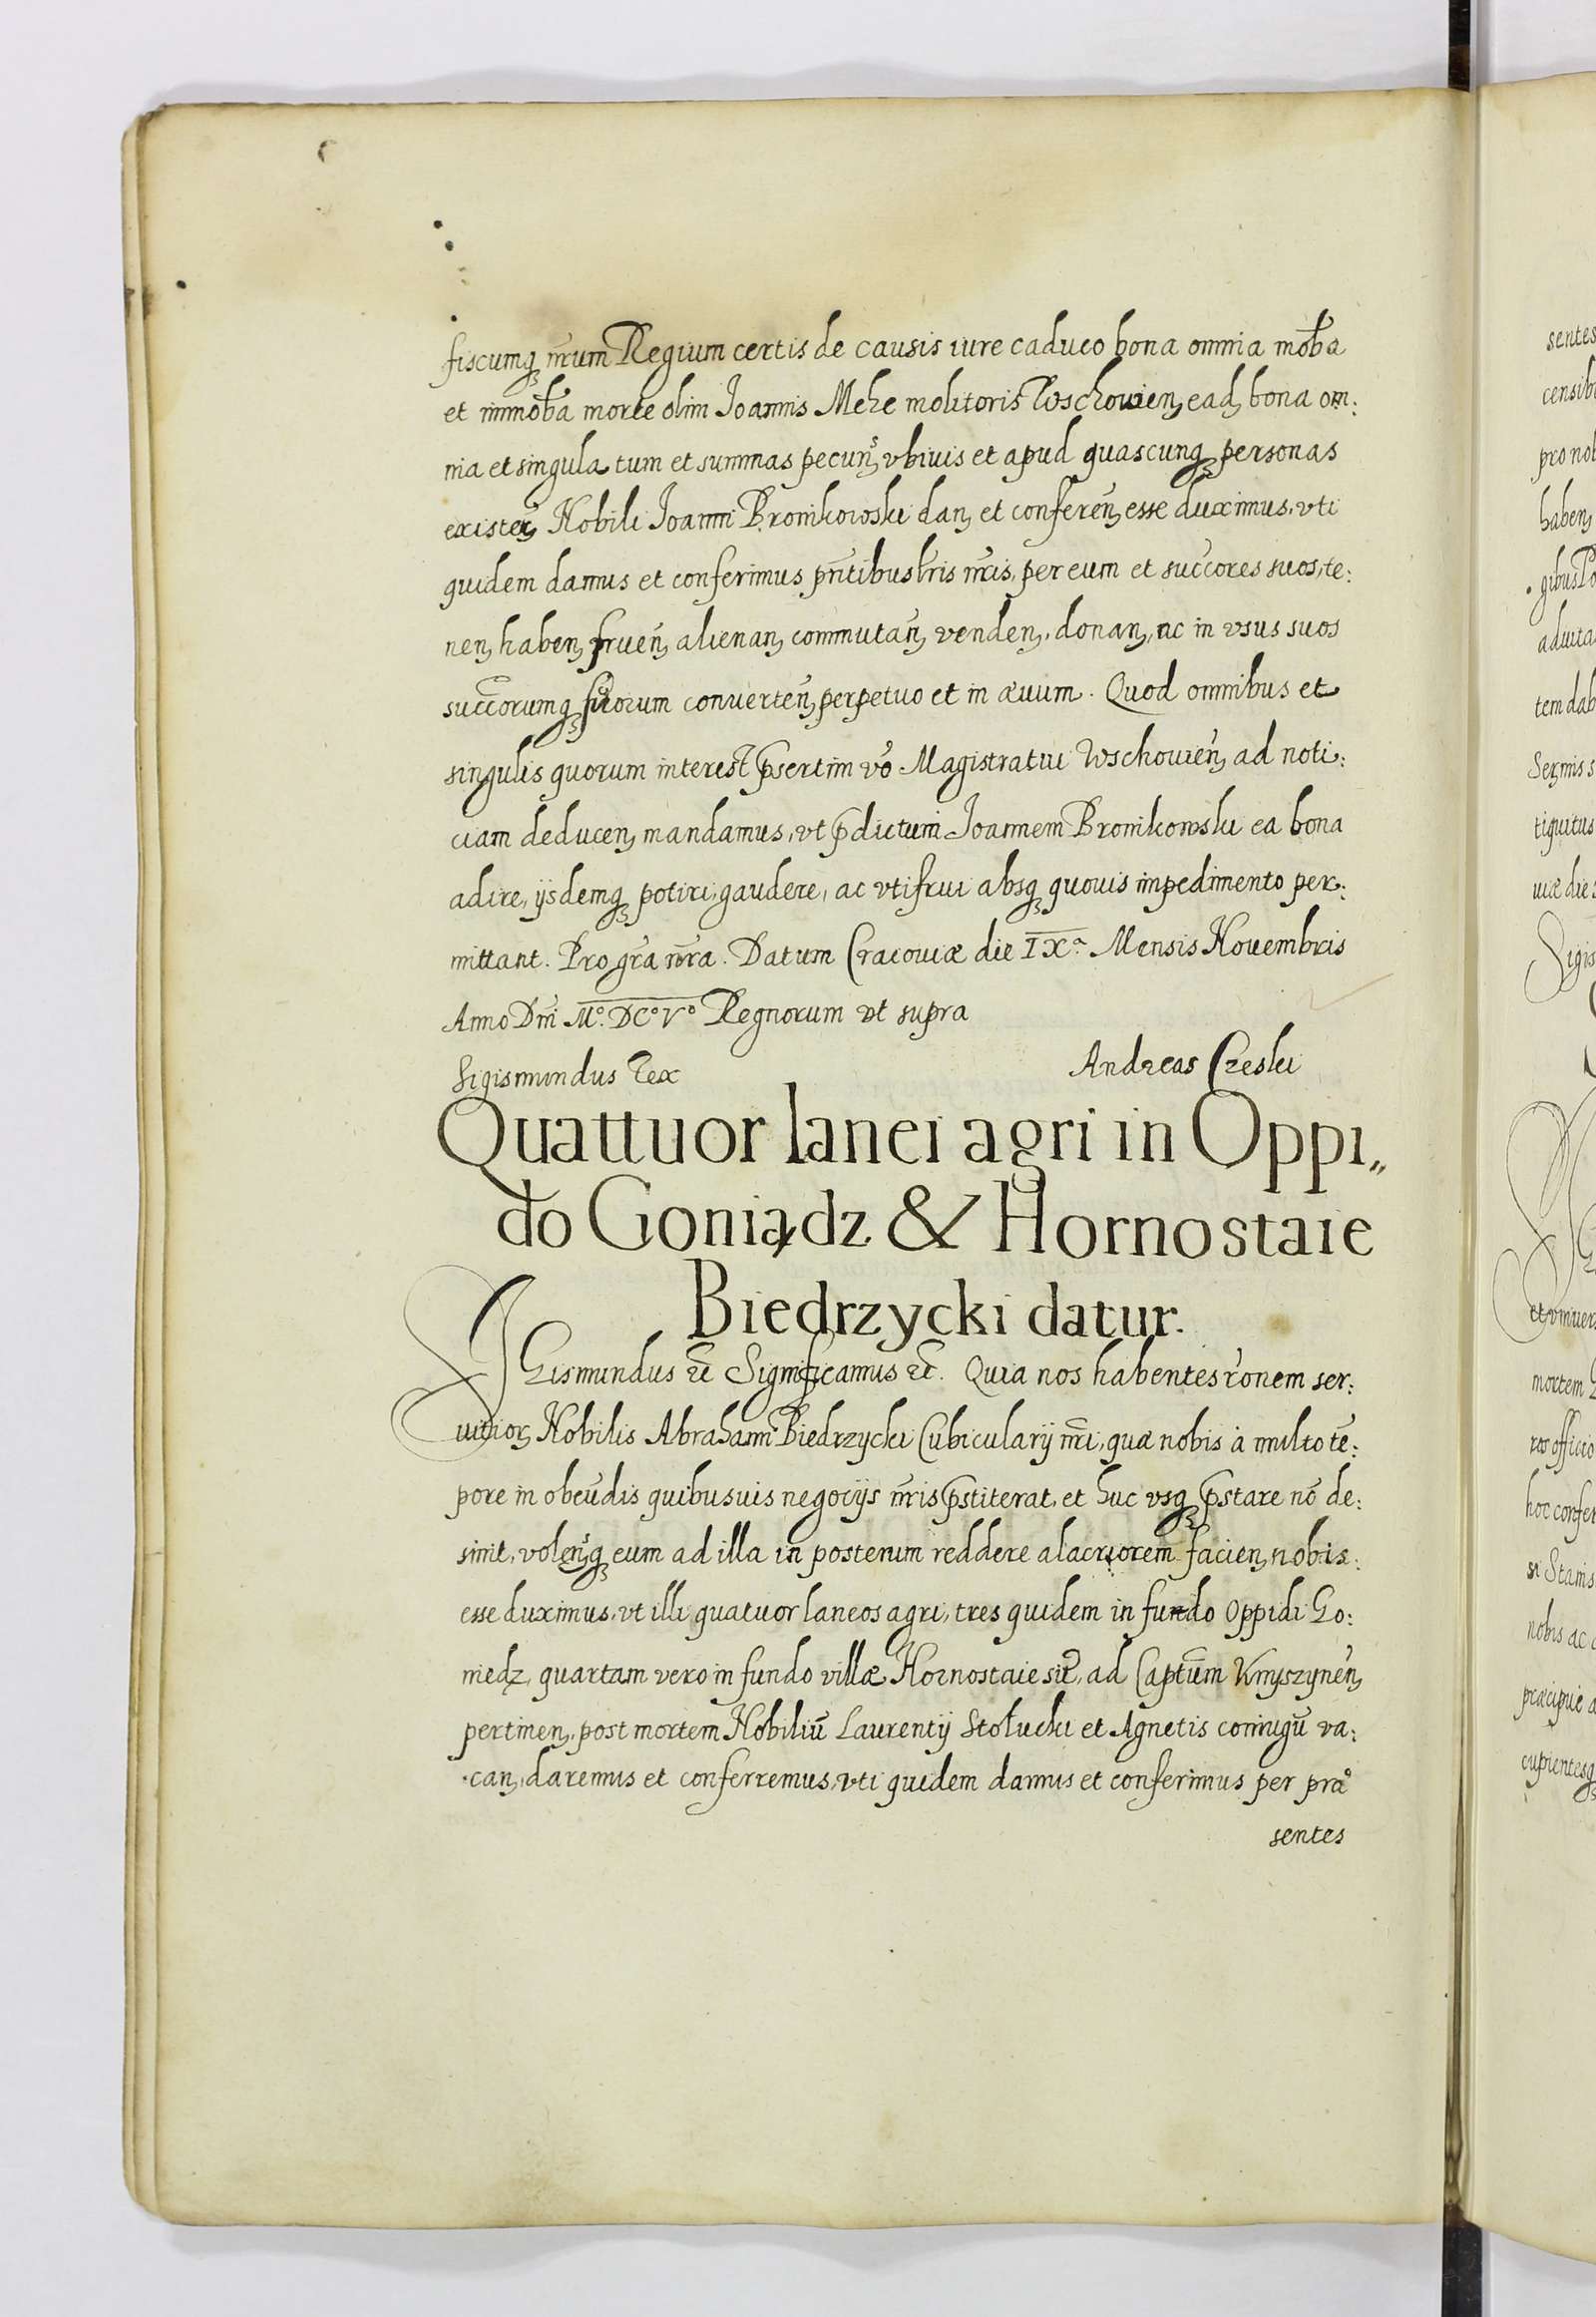 fiscumq₃ nr̄um Regium certis de causis iure caduco bona omnia mob̄a
et immob̄a morte olim Joannis Mehe molitoris Wschowien̄ ead, bona om:
nia et singula tum et summas pecun̄s vbiuis et apud quascunq₃ personas
existen̄ Nobili Joanni Bronikowski dan̄ et conferen̄ esse duximus, vti
quidem damus et conferimus pn̄tibus lr̄is nr̄is, per eum et succores suos, te:
nen̄ haben̄ fruen̄ alienan̄ commutan̄ venden̄, donan̄, ac in vsus suos
succorumq₃ suorum conuerten̄ perpetuo et in æuum. Quod omnibus et
singulis quorum interest p̄sertim vō Magistratui Wschouien̄ ad noti:
ciam deducen̄ mandamus, vt p̄dictum Joannem Bronikowski ea bona
adire, ijsdemq₃ potiri, gaudere, ac vtifrui absq₃ quouis impedimento per:
mittant. Pro grā nr̄a. Datum Cracouiæ die IXa Mensis Nouembris
Anno Dn̄i Mo. DCo Vo Regnorum vt supra
Sigismundus Rex
Andreas Czeski
Quattuor lanei agri in Oppi„
do Goniądz & Hornostaie
Biedrzycki datur.
SIGismundus etc̄ Significamus etc̄. Quia nos habentes rōnem ser:
uitior₃ Nobilis Abrahami Biedrzycki Cubicularij nr̄i, quæ nobis à multo tē:
pore in obeūdis quibusuis negocijs nr̄is p̄stiterat, et huc vsq₃ p̄stare nō de:
sinit, volen̄sq₃ eum ad illa in posterum reddere alacriorem facien̄ nobis
esse duximus, vt illi quatuor laneos agri, tres quidem in fundo Oppidi Go:
niedz, quartam vero in fundo villæ Hornostaie sit̄, ad Captūm Knyszynen̄
pertinen̄, post mortem Nobiliū Laurentij Stołucki et Agnetis coniugū va:
can̄, daremus et conferremus, vti quidem damus et conferimus per præ
sentes